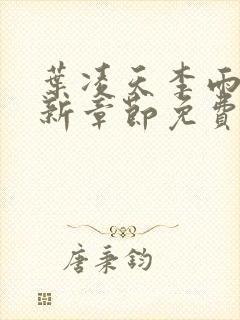 葉凌天李雨
新章節免費
唐秉鈞